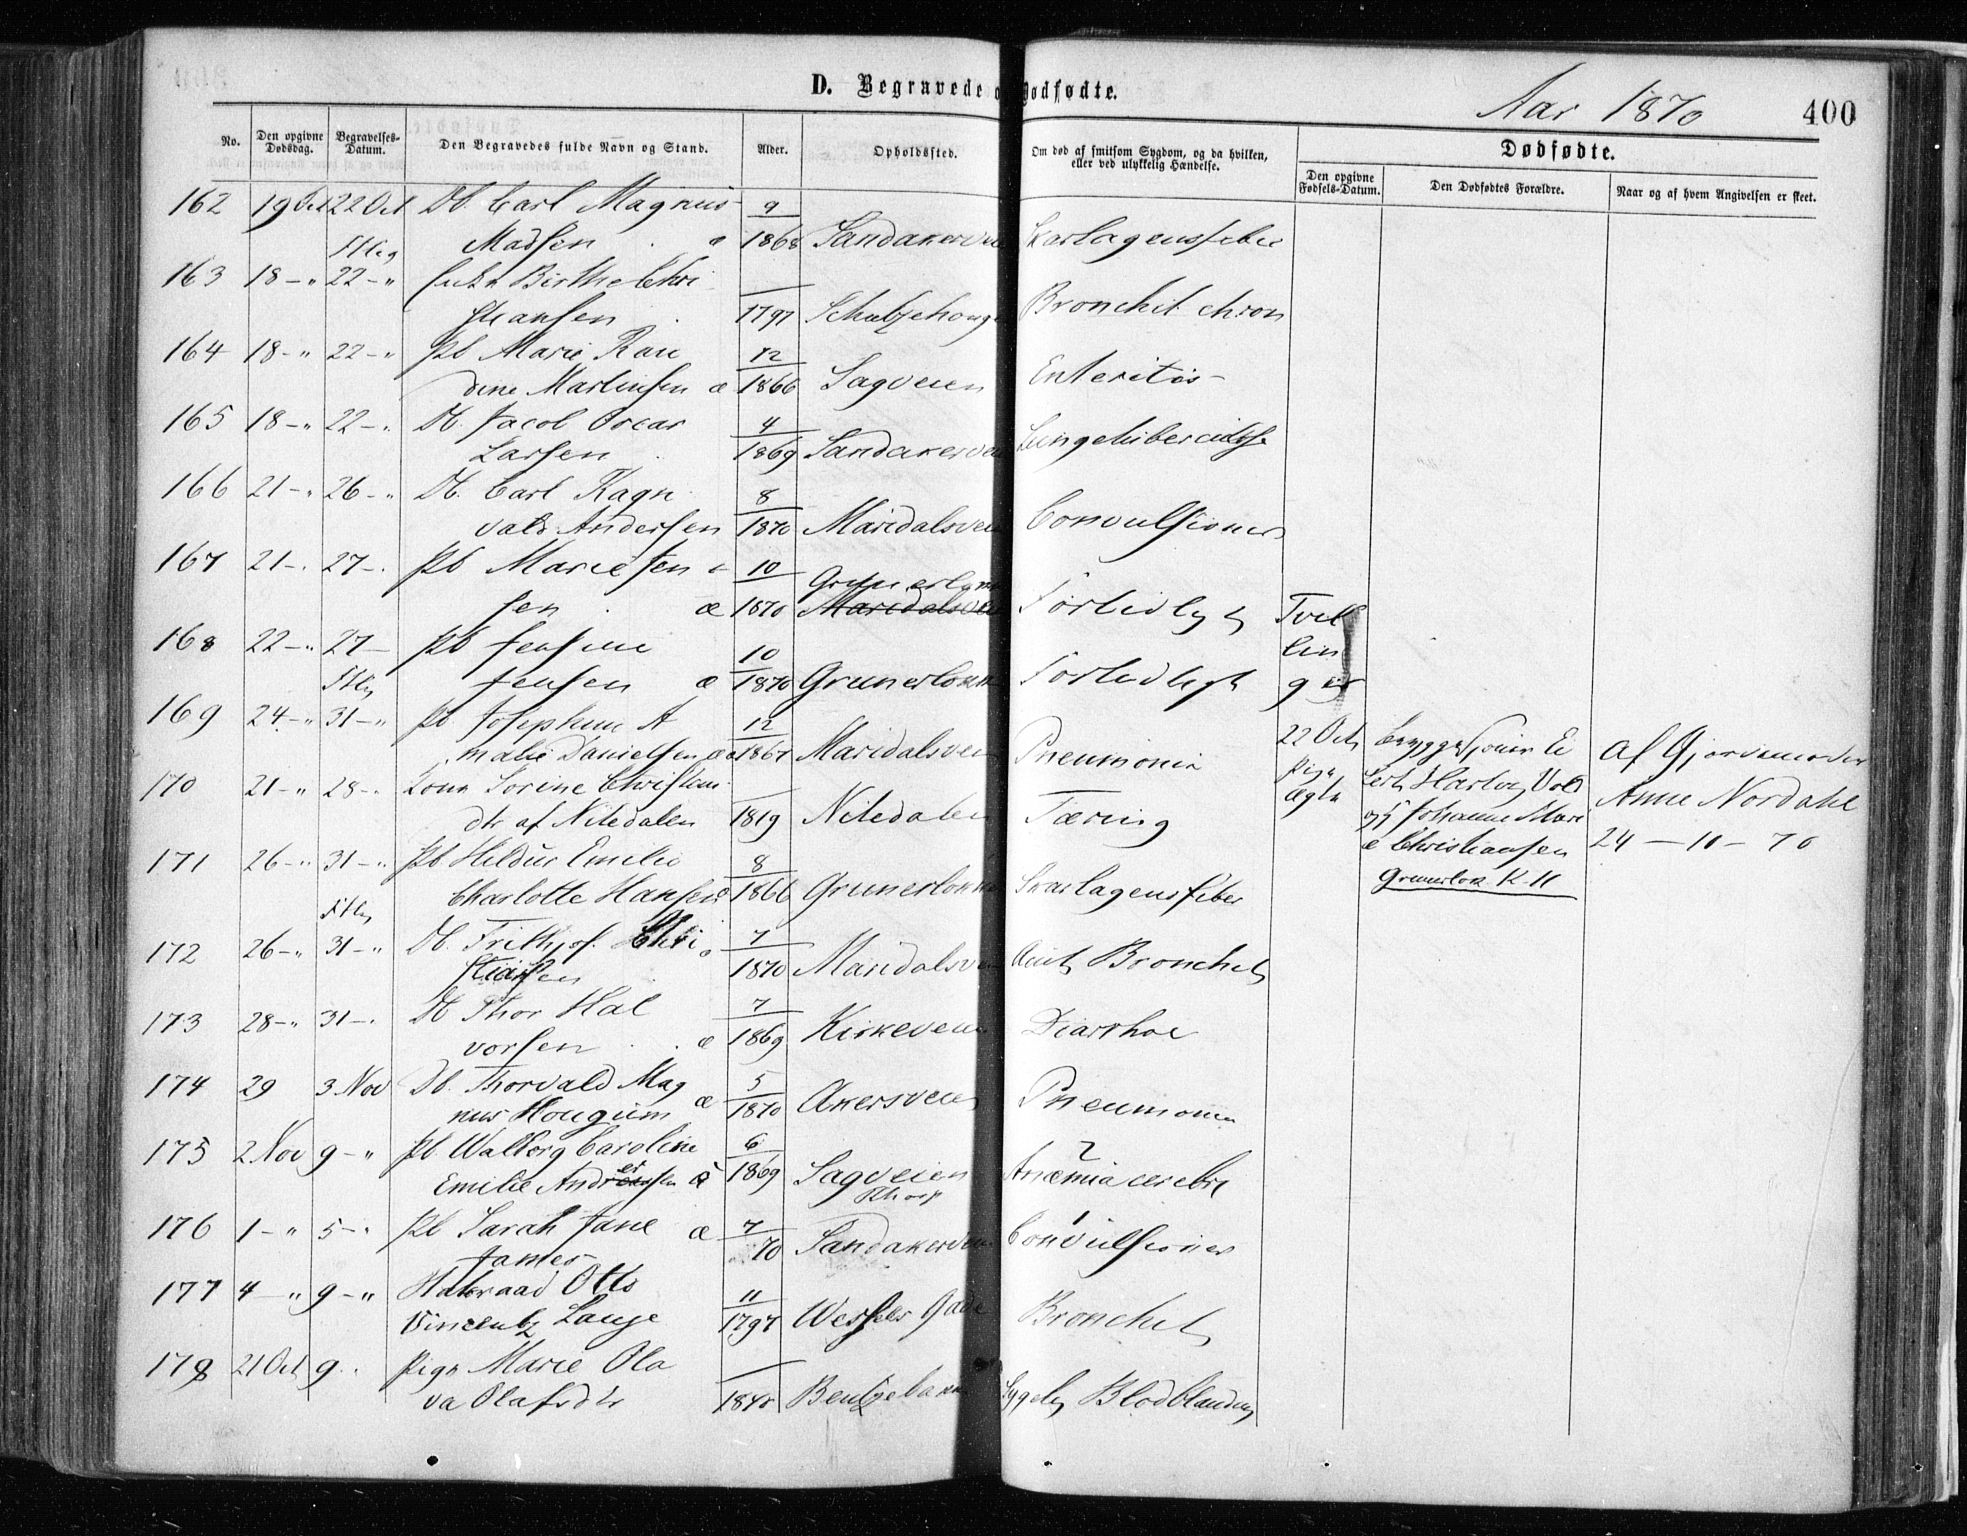 D. Begravede o Dødfødte.
Aar 1870
400
No.
Den opgivne Dødsdag.
Begravelses-Datum.
Den Begravedes fulde Navn og Stand.
Alder.
Opholdssted.
Om død af smitsom Sygdom, og da hvilken, eller ved ulykkelig Hændelse.
Dødfødte.
Den opgivne Fødsels-Datum.
Den Dødfødtes Forældre.
Naar og af hvem Angivelsen er skeet.
162 19 Oct 22 Oct Db. Carl Magnus 9
Madsen 1868 Sandakervei Skarlagensfeber
163 18 - " 22 - " Birthe Chri
stiansen 1797 Bronchit chron
164 18 - " 22 - " Pb Marie Ran 12
dine Martinsen æ 1866 Sagveien Enteritis
165 18 - " 22 - " Db. Jacob Oscar 4
Larsen 1869 Sandakervei Lungetuberculose
166 21 - " 26 - " Db. Carl Ragn 8
vald Andersen 1870 Maridalsvei Convulsioner
167 21 - " 27 - Pb Marie Jen 10
sen æ 1870 Grunerløkk Maridalsvei Fortidligt Tvil
168 22 - " 27 - Pb Jensine 10 lin
Jensen æ 1870 Grunerløkk Fortidligt ger
169 24 - " 31 - " Pb Josephine A 12
malie Danielsen æ 1867 Maridalsvei Pneumonia
22 Oct
Pige
Ægte
og Johanne Mari
e Christiansen
Grunerløk
Af Gjordemoder
Anne Nordahl
24 - 10 - 70
170 21 - " 28 - Lona Sorine Christen
dtr af Nitedalen 1819 Nitedalen Tæring
171 26 - " 31 - " Pb Hildur Emelie 8
Charlotte Hansen 1866 Grunerløkk Skarlagensfeber
172 26 - " 31 - " Db. Frithjof Chri 7
stiansen 1870 Maridalsvei Acut Bronchit
173 28 - " 31 - Db Thor Hal 7
vorsen æ 1869 Kirkeveien Diarrhoe
174 29 3 Nov Db. Thorvald Mag 5
nus Hougum æ 1870 Akersveien Pneumonia
175 2 Nov 9 - " Pb Walborg Caroline 6
Emilie Andersen æ 1869 Sagveien Anæmia cerebri
176 1 - " 5 - " Pb Sarah Jane æ 7
James 70 Sandakervei Convulsioner
177 4 - " 9 - " Otto 11
Vincentz Lange 1797 Wessels Gade Bronchit
178 21 Oct 9 Pige Marie Ola
va Olafsdtr Bentzebakk Sygelig Blodblanding